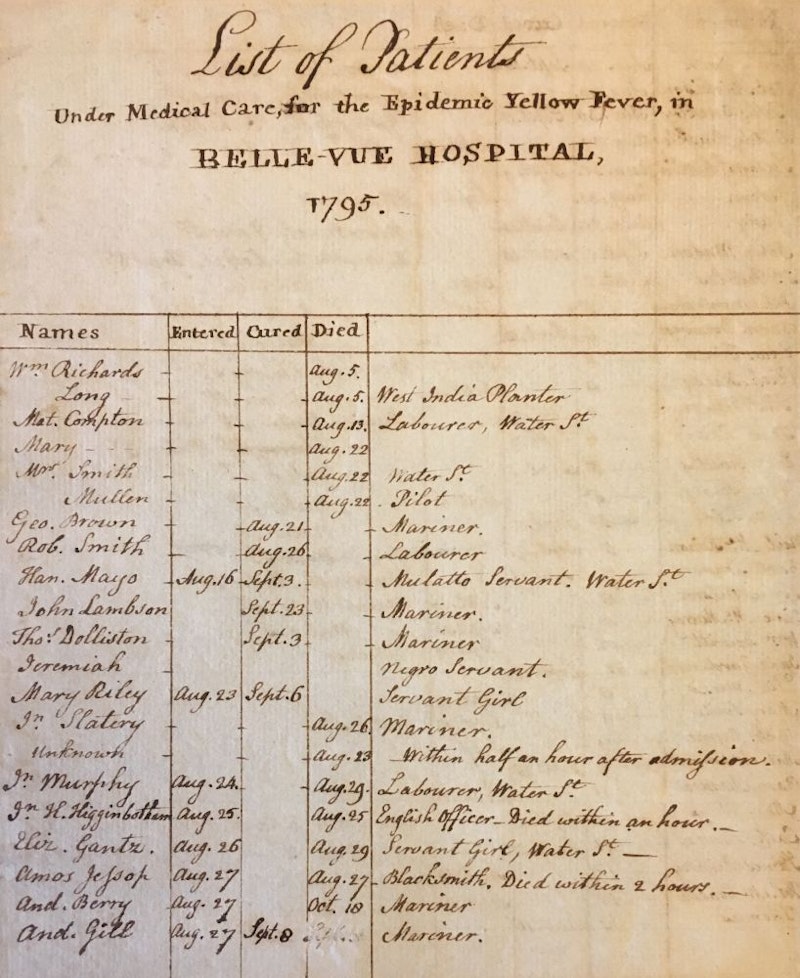 List of Patients
Under Medical Care, for the Epidemic Yellow Fever, in
BELLE-VUE HOSPITAL,
1795.
Names Entered Cured Died
Wm Richards Aug. 5.
Long Aug. 5. West India Planter
Mat. Compton Aug. 13. Labourer, Water St
Mary Aug. 22
Mrs. Smith Aug. 22 Water St
Mullen Aug. 22 Pilot
Geo. Brown Aug. 21 Mariner.
Rob. Smith Aug. 26 Labourer
Han. Mayo Aug. 16 Sept. 3. Mulatto Servant. Water St
John Lambson Sept. 23 Mariner.
Thos Dolliston Sept. 3 Mariner
Jeremiah Negro Servant.
Mary Riley Aug. 23 Sept. 6 Servant Girl
Jn Slatery Aug. 26. Mariner.
Unknown Aug. 23 Within half an hour after admission.
Jn Murphy Aug. 24. Aug. 29. Labourer, Water St
Jn H. Higginbotham Aug. 25. Aug. 25 English Officer - Died within an hour. -
Eliz. Gantz. Aug. 26 Aug. 29 Servant Girl, Water St -
Amos Jessop Aug. 27 Aug. 27 Blacksmith. Died within 2 hours. -
And. Berry Aug. 27 Oct. 18 Mariner
And. Gill Aug. 27 Sept. 8 Mariner.